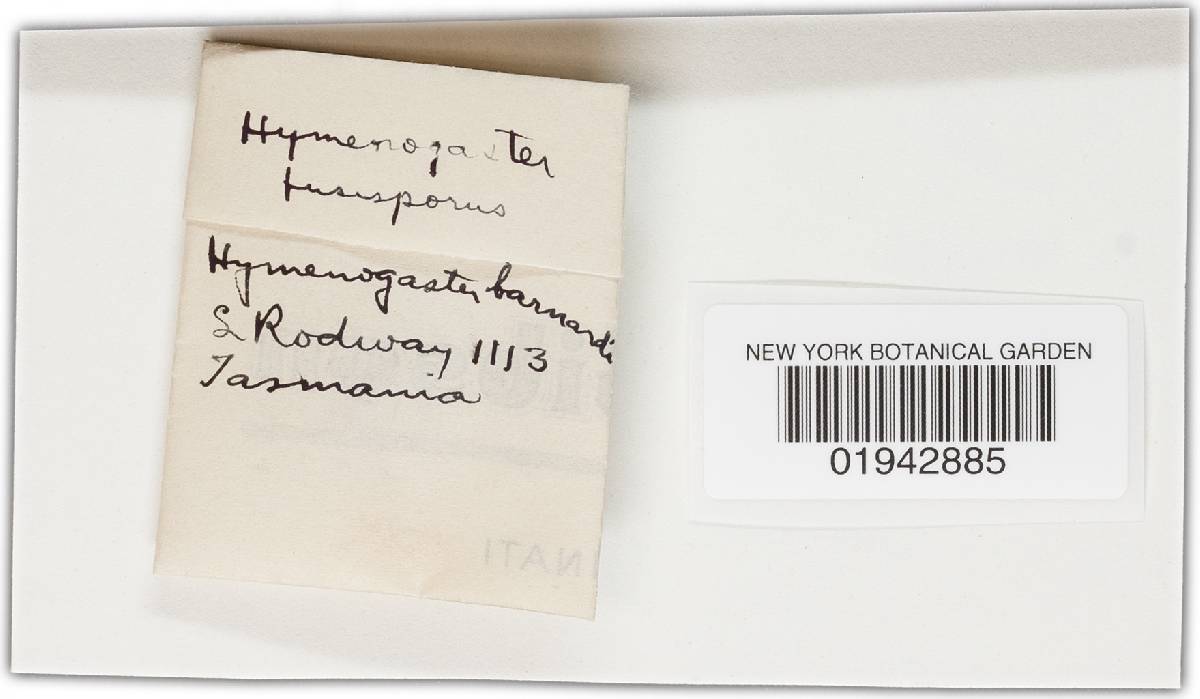 Hymenogaster
fusisporus
Hymenogaster barnardi
L Rodway 1113
Tasmania
NATI
NEW YORK BOTANICAL GARDEN
01942885